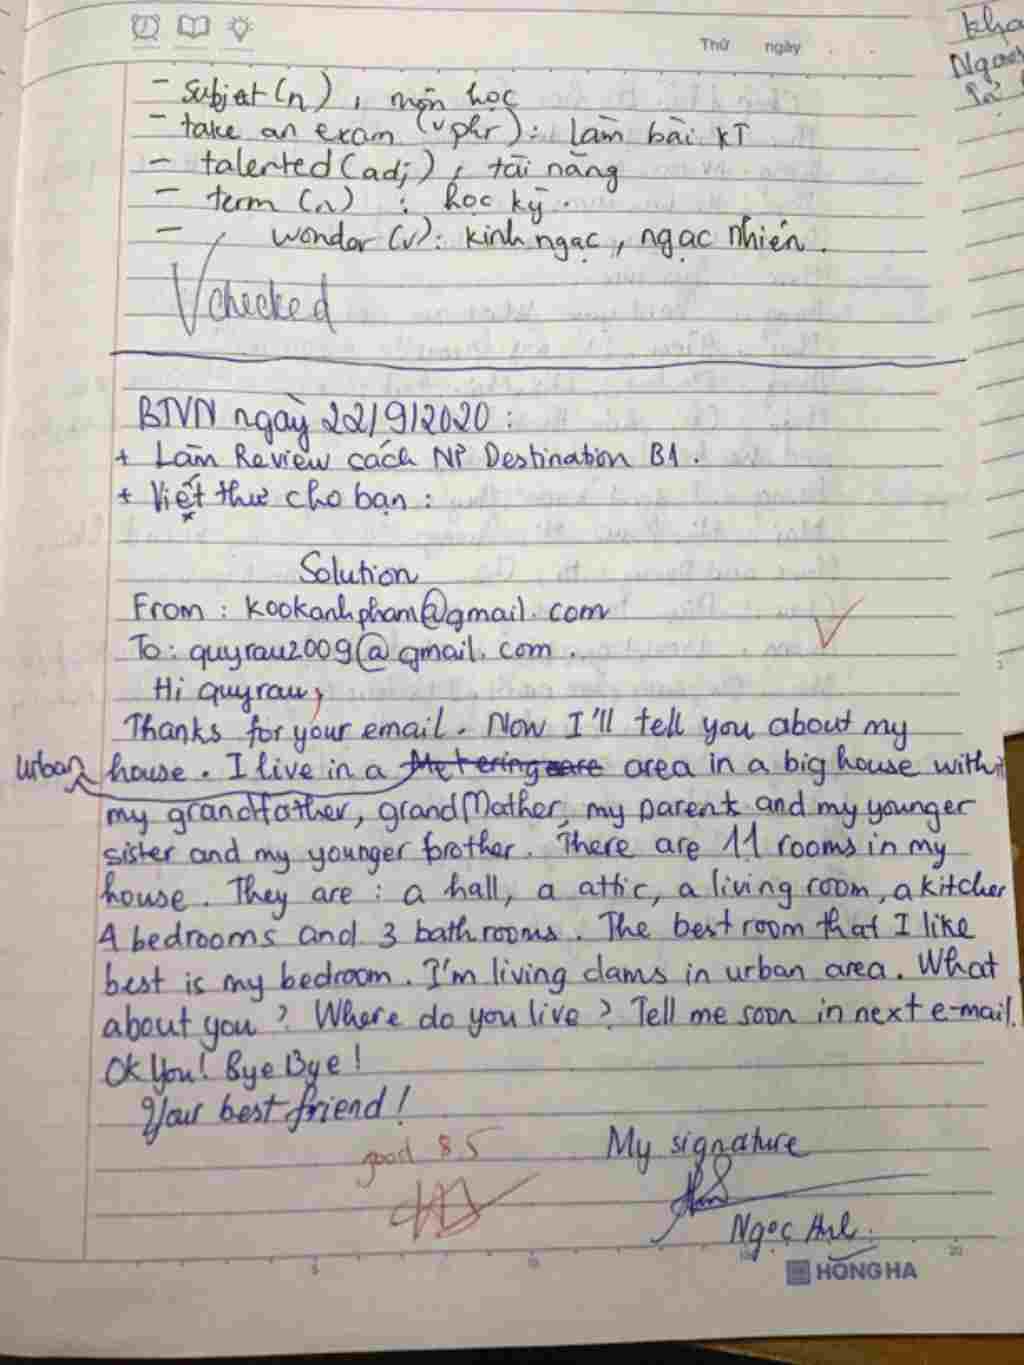 Thứ ngày
kha
- Subject (n) , môn học
- take an exam (v phr): Làm bài KT
- talented (adj) , tài năng
- term (n) : học kỳ.
- wonder (v): kinh ngạc, ngạc nhiên.
checked
BTVN ngày 22/9/2020:
+ Làm Review cách NP Destination B1.
+ Viết thư cho bạn:
Solution
From: kookanhpham@gmail.com
To: quyrau2009@gmail.com.
Hi quyrau,
Thanks for your email. Now I'll tell you about my
urban house. I live in a area in a big house with
my grandfather, grandMother, my parent and my younger
sister and my younger brother. There are 11 rooms in my
house. They are: a hall, a attic, a living room, a kitchen
4 bedrooms and 3 bathrooms. The best room that I like
best is my bedroom. I'm living in urban area. What
about you? Where do you live? Tell me soon in next e-mail.
Ok You! Bye Bye!
Your best friend!
good 8.5
My signature
Ngọc
5 10 20
HỒNG HÀ